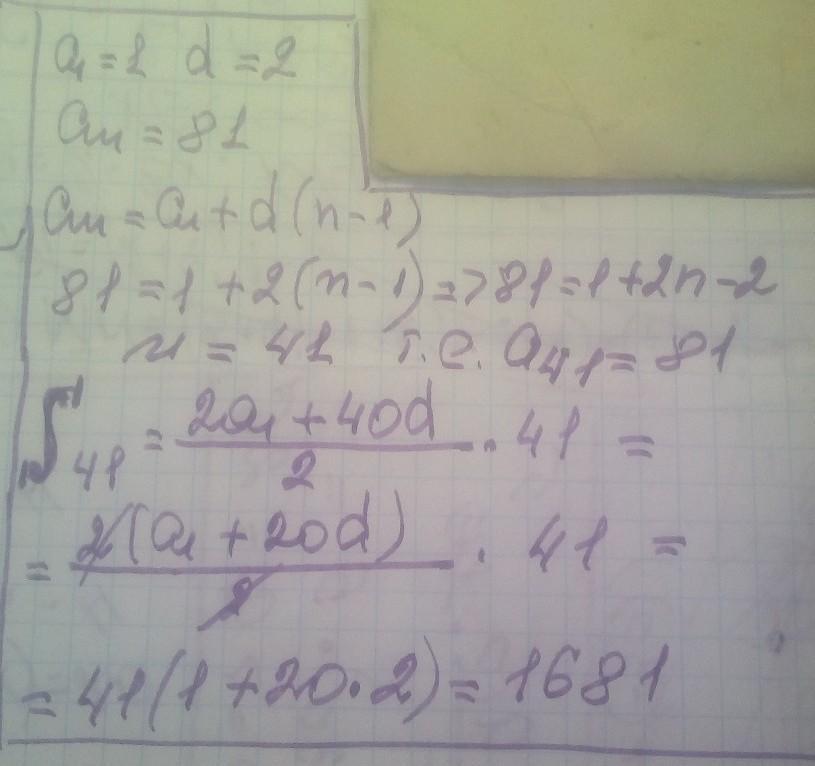 a₁ = 1 d = 2
aₙ = 81
aₙ = a₁ + d(n-1)
81 = 1 + 2(n-1) => 81 = 1 + 2n - 2
n = 41 т.е. a₄₁ = 81
S₄₁ = (2a₁ + 40d)/2 · 41 =
= 2(a₁ + 20d)/2 · 41 =
= 41(1 + 20·2) = 1681